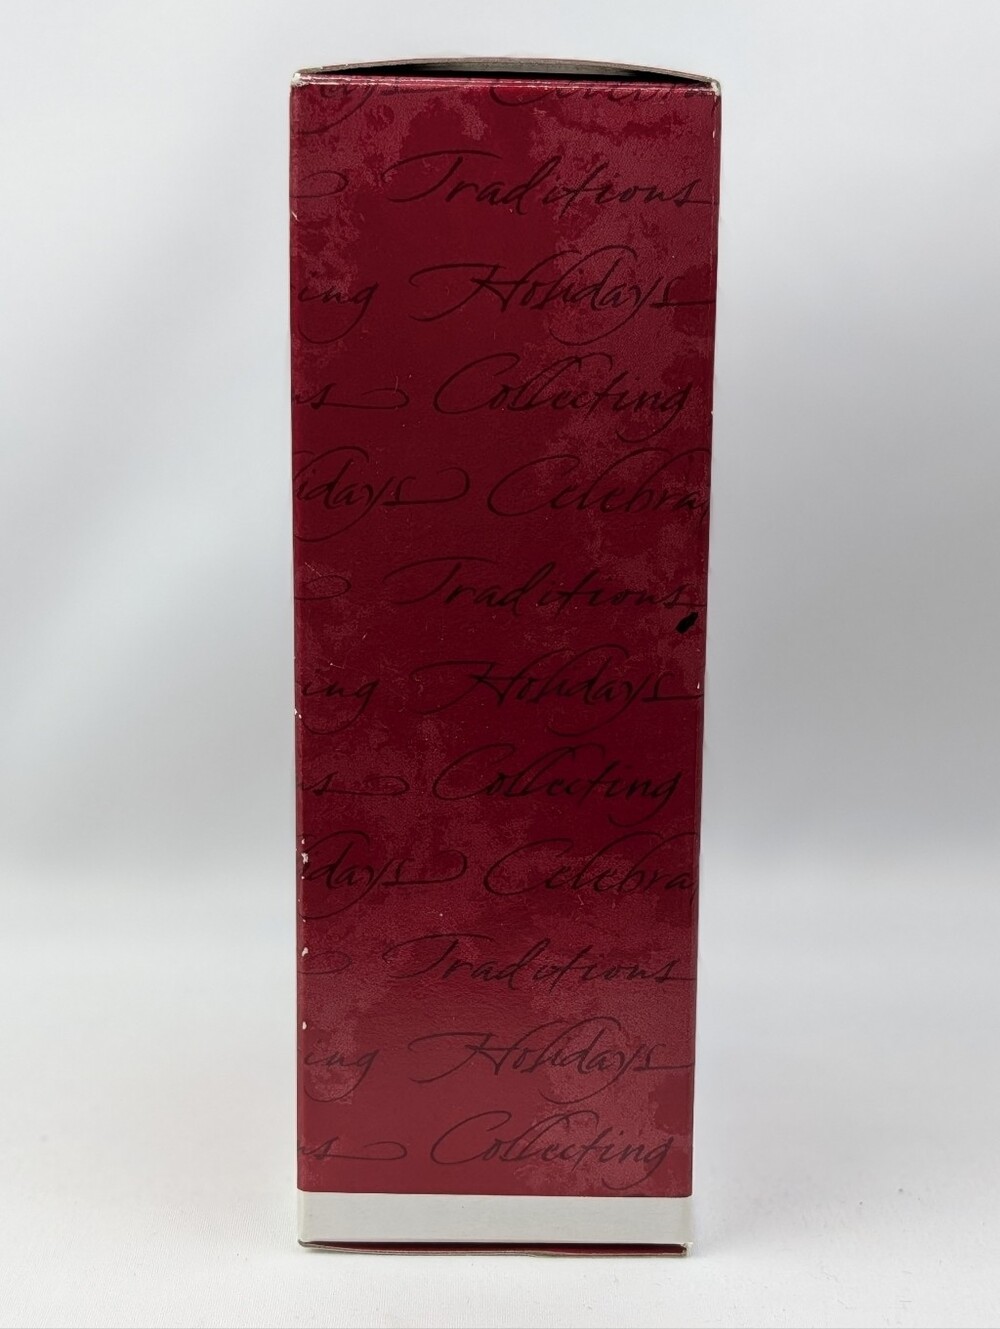 Traditions
ing Holidays
ns Collecting
idays Celebra
Traditions
ing Holidays
ns Collecting
idays Celebra
Traditions
ing Holidays
ns Collecting